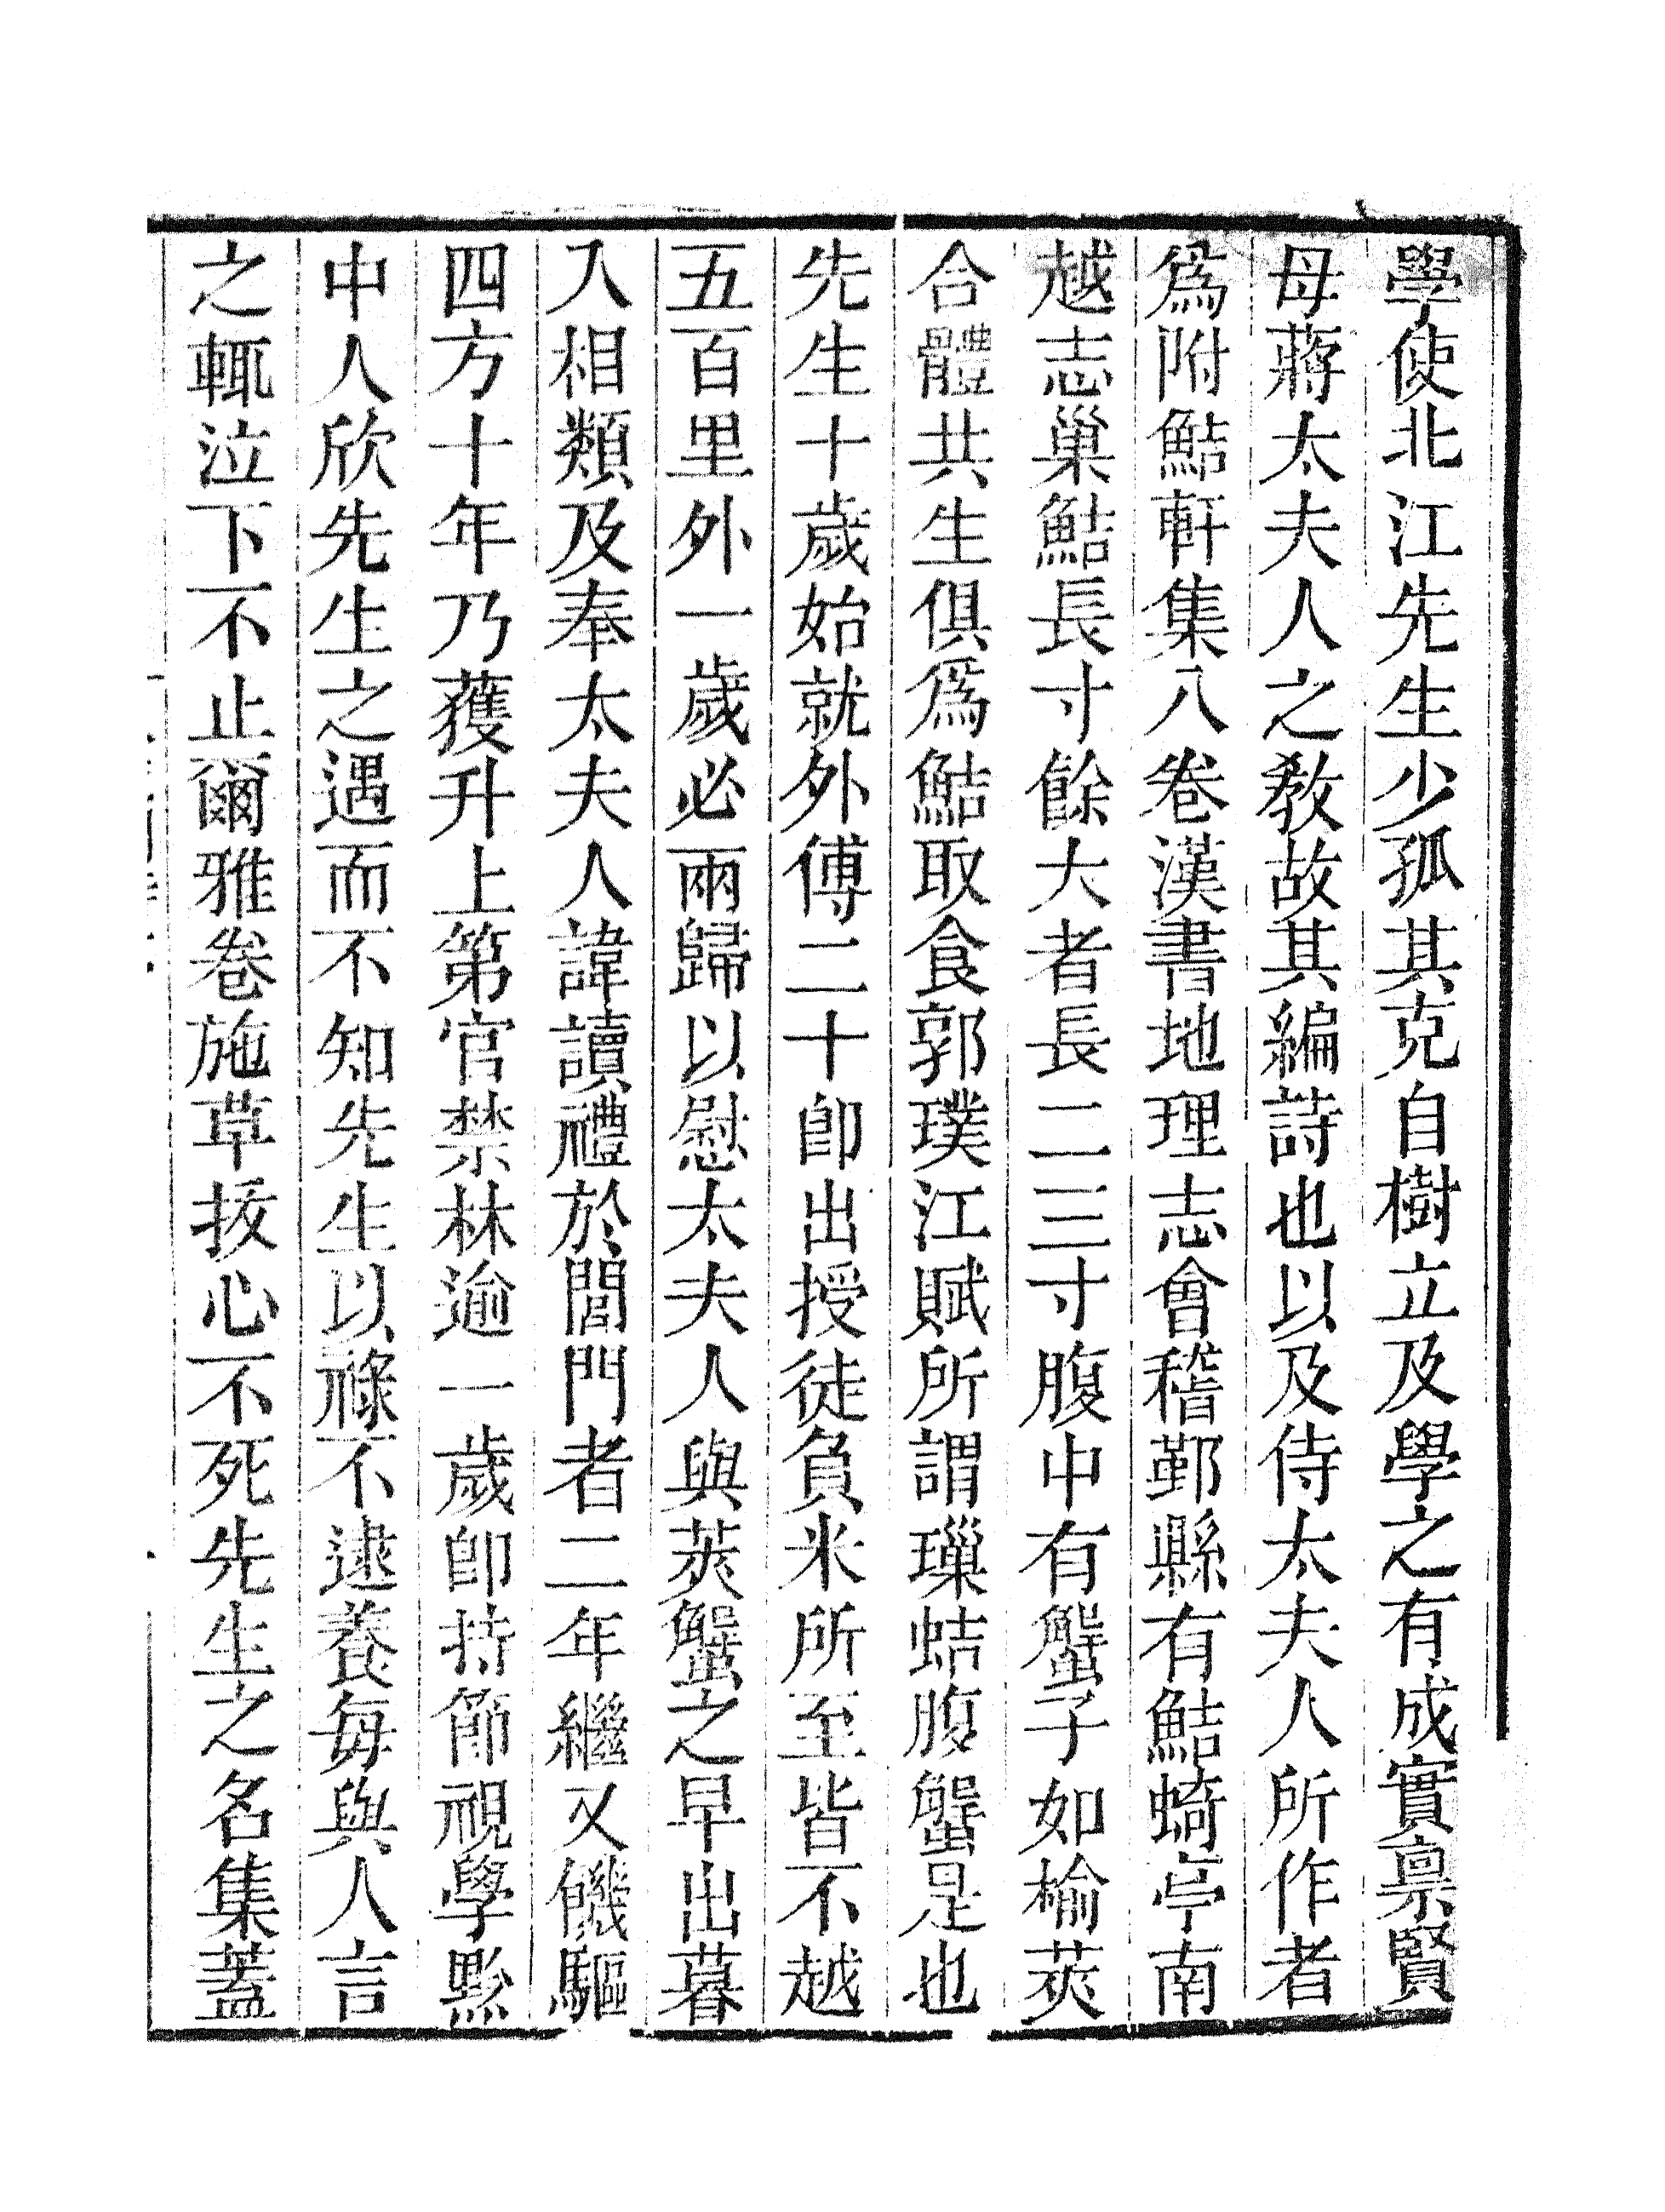 學使北江先生少孤其克自樹立及學之有成實禀賢
母蔣太夫人之敎故其編詩也以及侍太夫人所作者
爲附鮚軒集八卷漢書地理志會稽鄞縣有鮚䗁亭南
越志巢鮚長寸餘大者長二三寸腹中有蟹子如榆莢
合體共生俱爲鮚取食郭璞江賦所謂璅蛣腹蟹是也
先生十歲始就外傅二十卽出授徒負米所至皆不越
五百里外一歲必兩歸以慰太夫人與莢蟹之早出暮
入相類及奉太夫人諱讀禮於閭門者二年繼又饑驅
四方十年乃獲升上第官禁林逾一歲卽持節視學黔
中人欣先生之遇而不知先生以祿不逮養每與人言
之輒泣下不止爾雅卷施草拔心不死先生之名集蓋